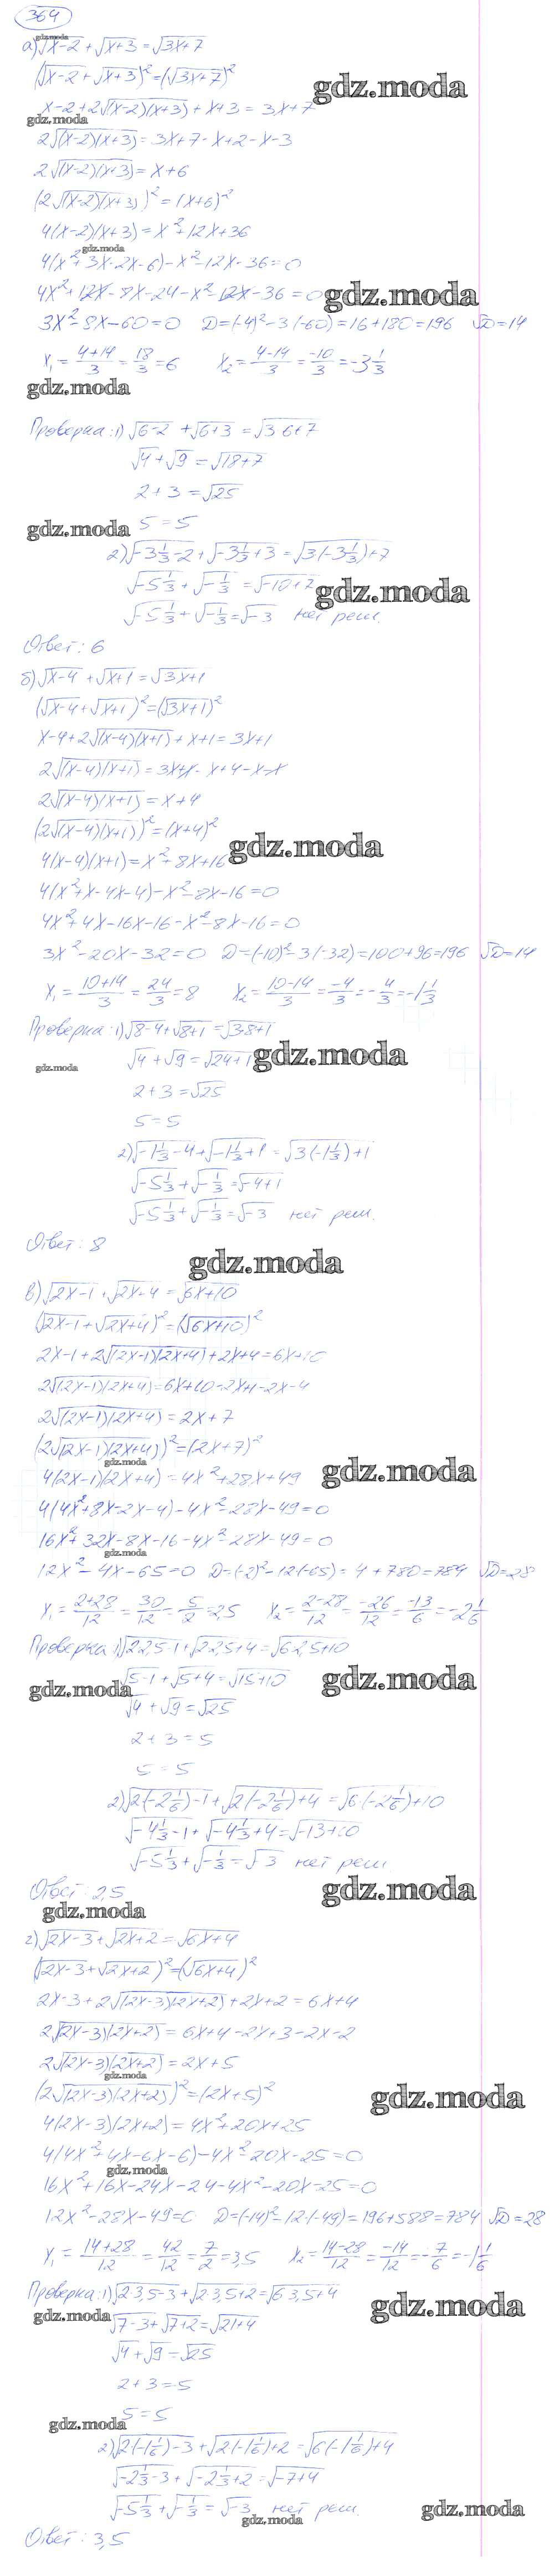 364
gdz.moda
а) √x-2 + √x+3 = √3x+7
(√x-2 + √x+3)² = (√3x+7)²
gdz.moda
x-2+2√(x-2)(x+3) + x+3 = 3x+7
gdz.moda
2√(x-2)(x+3) = 3x+7-x+2-x-3
2√(x-2)(x+3) = x+6
(2√(x-2)(x+3))² = (x+6)²
4(x-2)(x+3) = x²+12x+36
gdz.moda
4(x²+3x-2x-6)-x²-12x-36=0
4x²+12x-8x-24-x²-12x-36=0
gdz.moda
3x²-8x-60=0 D=(-4)²-3(-60)=16+180=196 √D=14
x₁ = 4+14/3 = 18/3 = 6 x₂ = 4-14/3 = -10/3 = -3 1/3
gdz.moda
Проверка: 1) √6-2 + √6+3 = √3·6+7
√4 + √9 = √18+7
2+3 = √25
5 = 5
gdz.moda
2) √-3 1/3 -2 + √-3 1/3 +3 = √3(-3 1/3)+7
√-5 1/3 + √-1/3 = √-10+7
gdz.moda
√-5 1/3 + √-1/3 = √-3 нет реш.
Ответ: 6
б) √x-4 + √x+1 = √3x+1
(√x-4 + √x+1)² = (√3x+1)²
x-4+2√(x-4)(x+1) + x+1 = 3x+1
2√(x-4)(x+1) = 3x+1-x+4-x-1
2√(x-4)(x+1) = x+4
(2√(x-4)(x+1))² = (x+4)²
gdz.moda
4(x-4)(x+1) = x²+8x+16
4(x²+x-4x-4)-x²-8x-16=0
4x²+4x-16x-16-x²-8x-16=0
3x²-20x-32=0 D=(-10)²-3(-32)=100+96=196 √D=14
x₁ = 10+14/3 = 24/3 = 8 x₂ = 10-14/3 = -4/3 = -4/3 = -1 1/3
Проверка: 1) √8-4 + √8+1 = √3·8+1
gdz.moda
gdz.moda
√4 + √9 = √24+1
2+3 = √25
5 = 5
2) √-1 1/3 -4 + √-1 1/3 +1 = √3(-1 1/3)+1
√-5 1/3 + √-1/3 = √-4+1
√-5 1/3 + √-1/3 = √-3 нет реш.
Ответ: 8
gdz.moda
в) √2x-1 + √2x-4 = √6x+10
(√2x-1 + √2x+4)² = (√6x+10)²
2x-1+2√(2x-1)(2x+4) + 2x+4 = 6x+10
2√(2x-1)(2x+4) = 6x+10-2x+1-2x-4
2√(2x-1)(2x+4) = 2x+7
(2√(2x-1)(2x+4))² = (2x+7)²
gdz.moda
gdz.moda
4(2x-1)(2x+4) = 4x²+28x+49
4(4x²+8x-2x-4)-4x²-28x-49=0
16x²+32x-8x-16-4x²-28x-49=0
gdz.moda
12x²-4x-65=0 D=(-2)²-12(-65)=4+780=784 √D=28
x₁ = 2+28/12 = 30/12 = 5/2 = 2,5 x₂ = 2-28/12 = -26/12 = -13/6 = -2 1/6
Проверка 1) √2·2,5-1 + √2·2,5+4 = √6·2,5+10
gdz.moda
√5-1 + √5+4 = √15+10
gdz.moda
√4 + √9 = √25
2+3 = 5
5 = 5
2) √2(-2 1/6)-1 + √2(-2 1/6)+4 = √6·(-2 1/6)+10
√-4 1/3 -1 + √-4 1/3 +4 = √-13+10
√-5 1/3 + √-1/3 = √-3 нет реш
Ответ: 2,5
gdz.moda
gdz.moda
г) √2x-3 + √2x+2 = √6x+4
(√2x-3 + √2x+2)² = (√6x+4)²
2x-3+2√(2x-3)(2x+2) + 2x+2 = 6x+4
2√(2x-3)(2x+2) = 6x+4-2x+3-2x-2
2√(2x-3)(2x+2) = 2x+5
gdz.moda
(2√(2x-3)(2x+2))² = (2x+5)²
gdz.moda
4(2x-3)(2x+2) = 4x²+20x+25
4(4x²+4x-6x-6)-4x²-20x-25=0
gdz.moda
16x²+16x-24x-24-4x²-20x-25=0
12x²-28x-49=0 D=(-14)²-12·(-49)=196+588=784 √D=28
x₁ = 14+28/12 = 42/12 = 7/2 = 3,5 x₂ = 14-28/12 = -14/12 = -7/6 = -1 1/6
Проверка: 1) √2·3,5-3 + √2·3,5+2 = √6·3,5+4
gdz.moda
gdz.moda
√7-3 + √7+2 = √21+4
√4 + √9 = √25
2+3 = 5
5 = 5
gdz.moda
2) √2(-1 1/6)-3 + √2(-1 1/6)+2 = √6(-1 1/6)+4
√-2 1/3 -3 + √-2 1/3 +2 = √-7+4
√-5 1/3 + √-1/3 = √-3 нет реш.
gdz.moda
gdz.moda
Ответ: 3,5